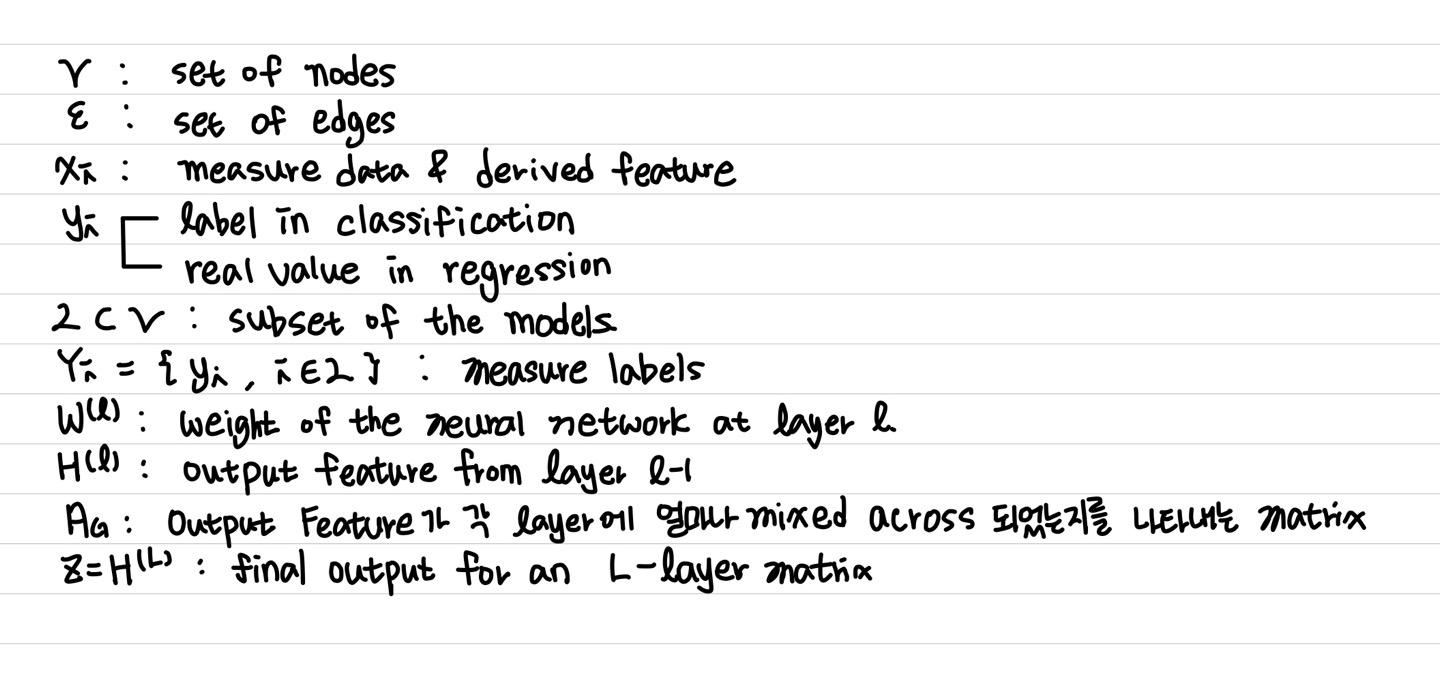 𝒱 : set of nodes
ℰ : set of edges
xᵢ : measure data & derived feature
yᵢ label in classification
real value in regression
2 ⊂ 𝒱 : subset of the models
Yᵢ = { yᵢ , i ∈ 2 } : measure labels
W⁽ˡ⁾ : weight of the neural network at layer l
H⁽ˡ⁾ : output feature from layer l-1
A_G : Output Feature가 각 layer에 얼마나 mixed across 되었는지를 나타내는 matrix
Z=H⁽ᴸ⁾ : final output for an L-layer matrix